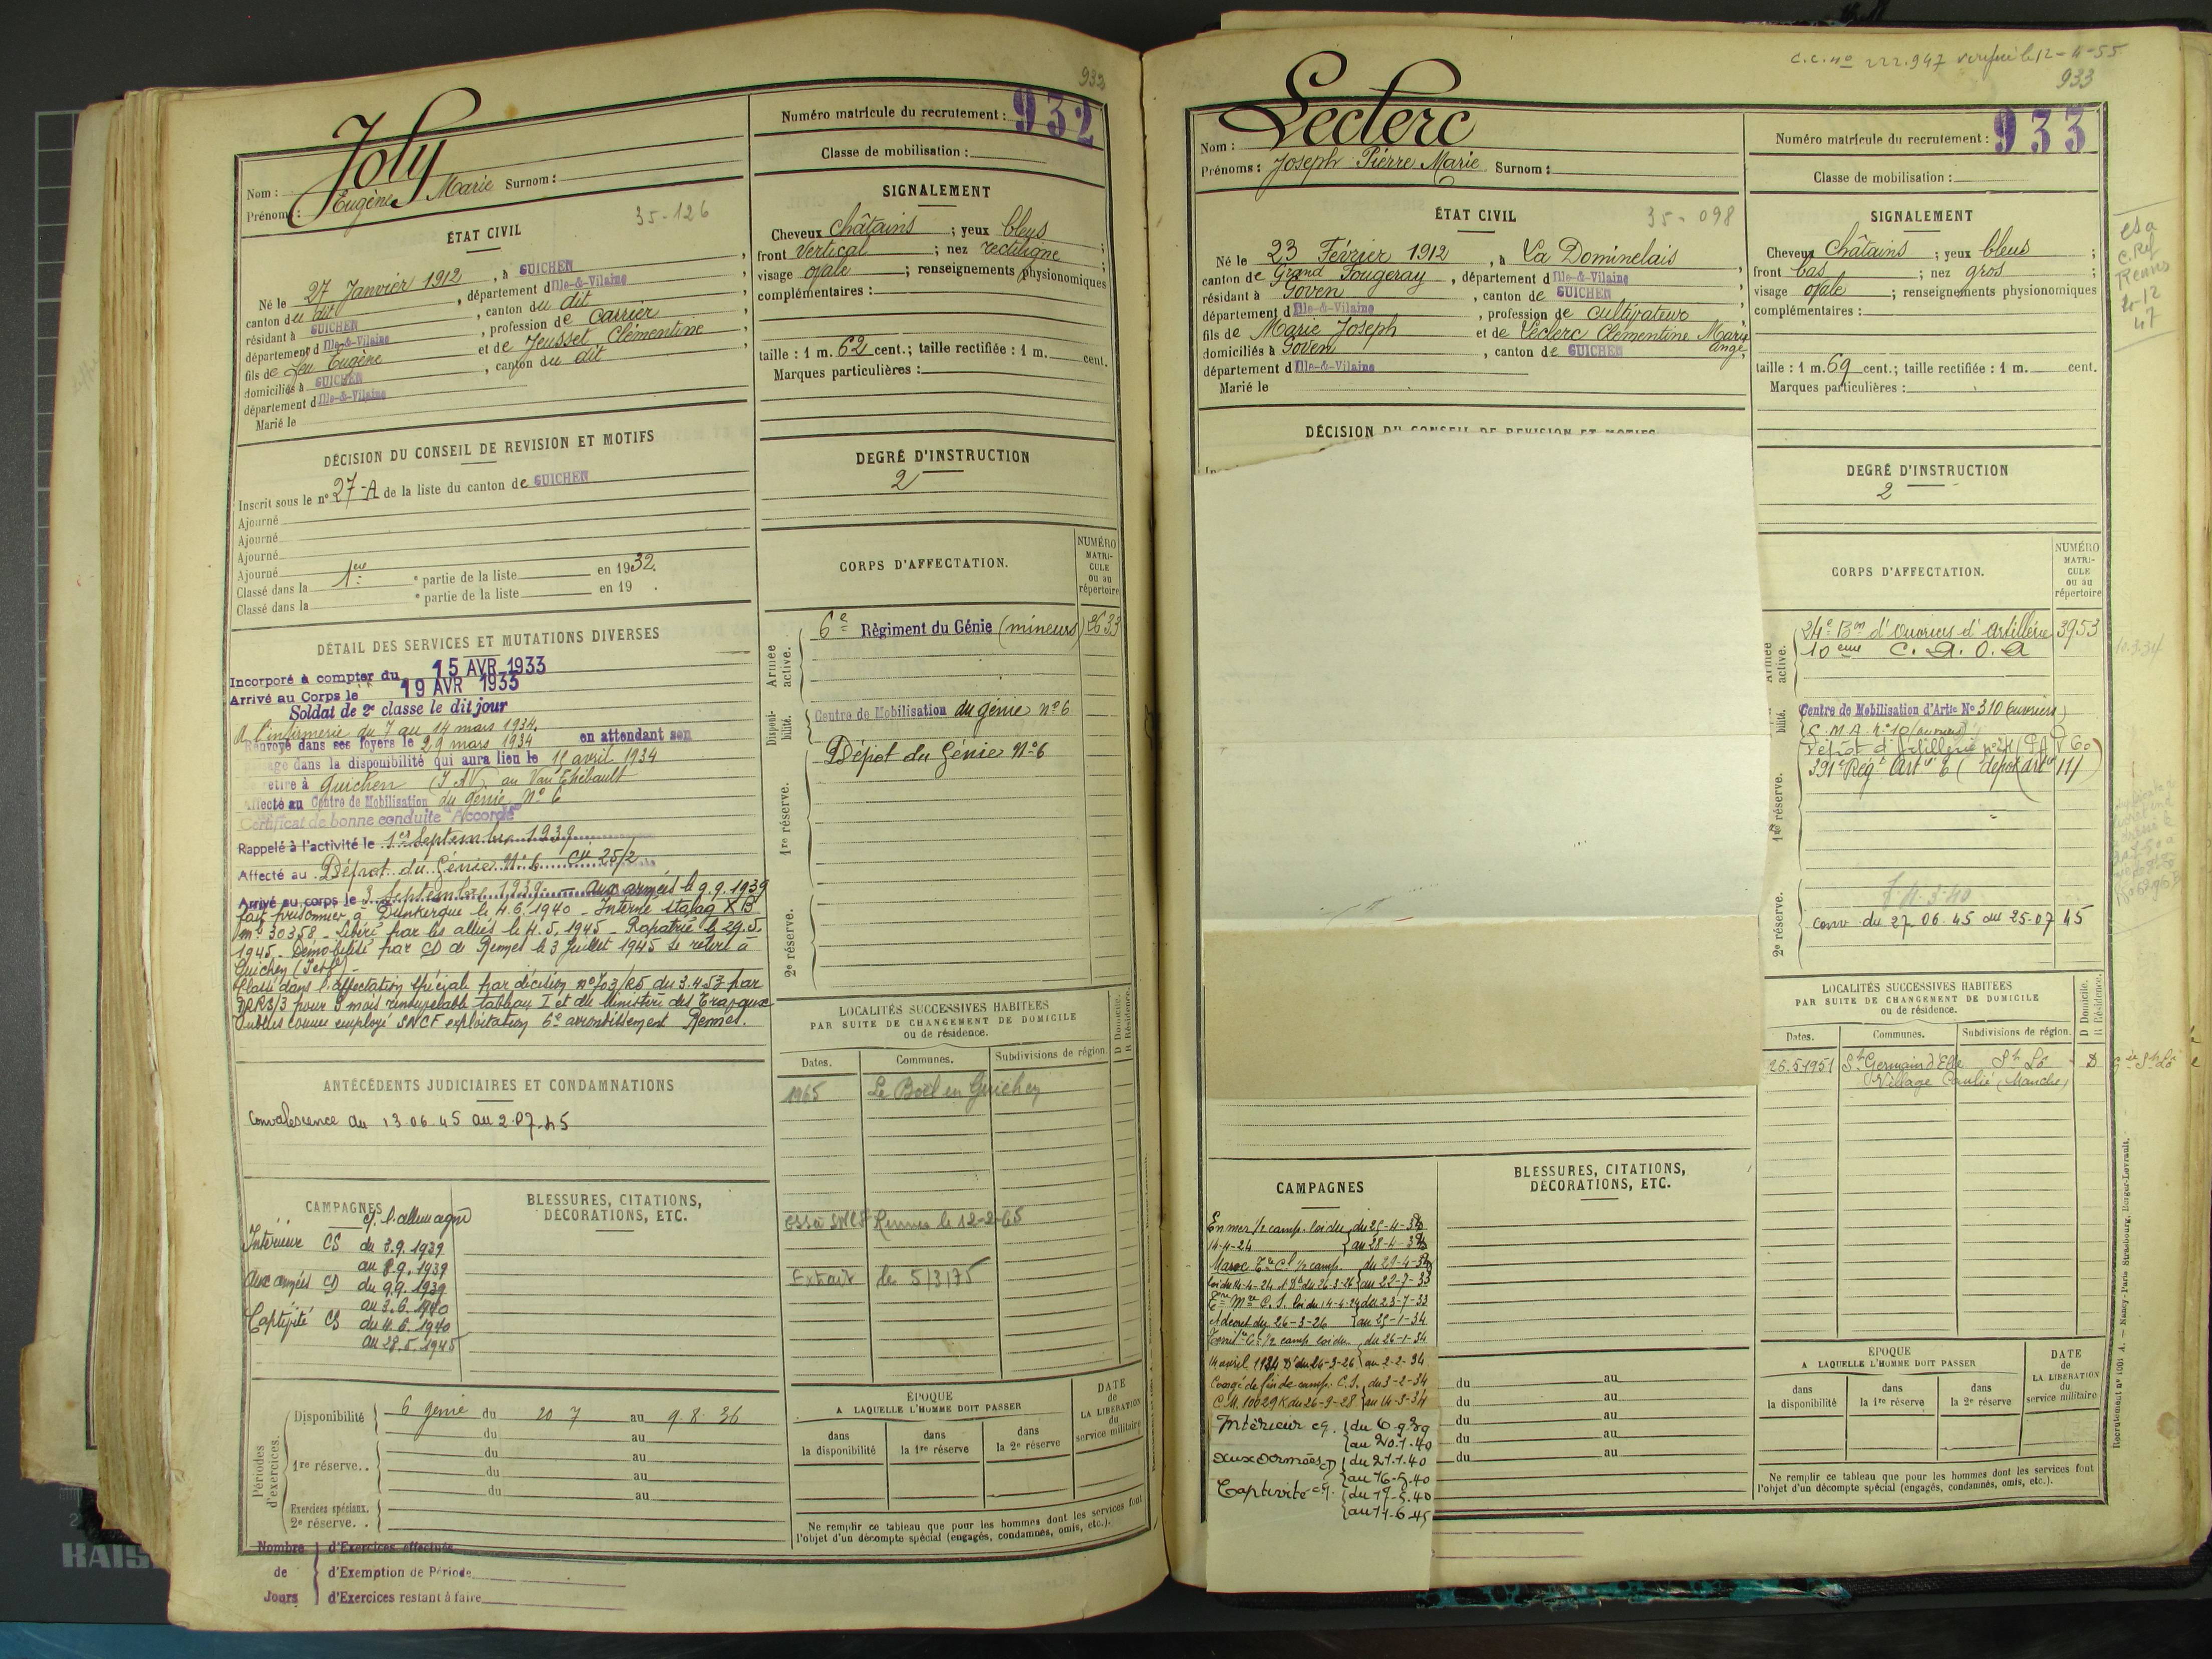 932
Joly
Nom :
Prénom : Eugène Marie Surnom :
Numéro matricule du recrutement : 932
Classe de mobilisation :
ÉTAT CIVIL
35-126
Né le 27 Janvier 1912, à GUICHEN
canton du dit, département d'Ille-&-Vilaine,
résidant à GUICHEN, canton du dit
département d'Ille-&-Vilaine, profession de Carrier
fils de feu Eugène et de Jeusset Clémentine,
domiciliés à GUICHEN, canton du dit,
département d'Ille-&-Vilaine
Marié le
SIGNALEMENT
Cheveux châtains ; yeux bleus ;
front vertical ; nez rectiligne ;
visage ovale ; renseignements physionomiques
complémentaires :
taille : 1 m. 62 cent. ; taille rectifiée : 1 m. cent.
Marques particulières :
DÉCISION DU CONSEIL DE REVISION ET MOTIFS
Inscrit sous le n° 27-A de la liste du canton de GUICHEN
Ajourné
Ajourné
Ajourné
Ajourné
Classé dans la 1ère partie de la liste en 1932.
Classé dans la ° partie de la liste en 19 .
DEGRÉ D'INSTRUCTION
2
DÉTAIL DES SERVICES ET MUTATIONS DIVERSES
Incorporé à compter du 15 AVR 1933
Arrivé au Corps le 19 AVR 1933
Soldat de 2e classe le dit jour
A l'infirmerie du 7 au 14 mars 1934.
Renvoyé dans ses foyers le 29 mars 1934 en attendant son
passage dans la disponibilité qui aura lieu le 15 avril 1934
Se retire à Guichen (I &V) au Vau Thébault
Affecté au Centre de Mobilisation du génie N° 6
Certificat de bonne conduite "Accordé"
Rappelé à l'activité le 1er Septembre 1939
Affecté au Dépôt du Génie N° 6 Cie 25/2
Arrivé au corps le 3 Septembre 1939 - aux armées le 9.9.1939
fait prisonnier à Dunkerque le 4.6.1940 - Interné stalag XB
m° 30358 - Libéré par les alliés le 4.5.1945 - Rapatrié le 29.5.
1945. Démobilisé par CD de Rennes le 3 Juillet 1945 se retire à
Guichen
Classé dans l'affectation spéciale par décision n° 703/RS du 3.4.57 par
pour 3 mois renouvelable tableau I et du Ministère des Travaux
Publics comme employé SNCF exploitation 6e arrondissement Rennes.
CORPS D'AFFECTATION.
NUMÉRO MATRICULE ou au répertoire
Armée active.
6e Régiment du Génie (mineurs) 2633
Disponibilité.
Centre de Mobilisation du génie N° 6
1re réserve.
Dépôt du Génie N° 6
2e réserve.
ANTÉCÉDENTS JUDICIAIRES ET CONDAMNATIONS
Convalescence du 13.06.45 au 2.07.45
LOCALITÉS SUCCESSIVES HABITÉES
PAR SUITE DE CHANGEMENT DE DOMICILE
ou de résidence.
D Domicile.
R Résidence.
Dates. Communes. Subdivisions de région.
1965 Le Boël en Guichen
SNCF Rennes le 12-2-65
Extrait le 5/3/75
CAMPAGNES
c/ l'allemagne
Intérieur CS du 3.9.1939
au 8.9.1939
Aux armées CD du 9.9.1939
au 3.6.1940
Captivité CS du 4.6.1940
au 28.5.1945
BLESSURES, CITATIONS,
DÉCORATIONS, ETC.
Périodes d'exercices.
Disponibilité 6 génie du 20 7 au 9.8.36
du au
1re réserve.. du au
du au
du au
Exercices spéciaux.
2e réserve. .
ÉPOQUE
A LAQUELLE L'HOMME DOIT PASSER
dans la disponibilité
dans la 1re réserve
dans la 2e réserve
DATE de LA LIBÉRATION du service militaire
Ne remplir ce tableau que pour les hommes dont les services font
l'objet d'un décompte spécial (engagés, condamnés, omis, etc.).
Nombre de Jours
d'Exercices effectués
d'Exemption de Période
d'Exercices restant à faire
C.C. no 222.947 vérifié le 12-4-55
933
Leclerc
Nom :
Prénoms : Joseph Pierre Marie Surnom :
Numéro matricule du recrutement : 933
Classe de mobilisation :
ÉTAT CIVIL
35-098
Né le 23 Février 1912, à La Dominelais
canton de Grand Fougeray, département d'Ille-&-Vilaine,
résidant à Goven, canton de GUICHEN
département d'Ille-&-Vilaine, profession de cultivateur
fils de Marie Joseph et de Leclerc Clémentine Marie Ange,
domiciliés à Goven, canton de GUICHEN
département d'Ille-&-Vilaine
Marié le
SIGNALEMENT
Cheveux châtains ; yeux bleus ;
front bas ; nez gros ;
visage ovale ; renseignements physionomiques
complémentaires :
taille : 1 m. 69 cent. ; taille rectifiée : 1 m. cent.
Marques particulières :
Rennes
4-12
47
DÉCISION DU CONSEIL DE REVISION ET MOTIFS
DEGRÉ D'INSTRUCTION
2
CORPS D'AFFECTATION.
NUMÉRO MATRICULE ou au répertoire
Armée active.
24e Bon d'ouvriers d'artillerie 3953
10ème C. A. O. A
10.3.34
bilité.
Centre de Mobilisation d'Artie N° 310 (ouvriers)
C.M.A. n° 10 (ouvriers)
1re réserve.
2e réserve.
Conv du 27.06.45 au 25.07 45
LOCALITÉS SUCCESSIVES HABITÉES
PAR SUITE DE CHANGEMENT DE DOMICILE
ou de résidence.
D Domicile.
R Résidence.
Dates. Communes. Subdivisions de région.
26.5.1951 St Germain d'Elle St Lô D
Village Paulie (Manche)
CAMPAGNES
En mer 1/2 camp. loi du
14-4-24
Maroc
au 22-7-33
loi du 14-4-24 du 23-7-33
décret du 26-3-26 au 25-1-34
1/2 camp. loi du du 26-1-34
14 avril 1924 Dt du 26-3-26 au 2-2-34
Congé de fin de camp. C.S. du 3-2-34
C.M. 10029K du 26-9-28 au 14-3-34
Intérieur cs. du 6.9.39
au 20.1.40
aux armées CD du 21.1.40
au 16-5.40
Captivité cs. du 17-5.40
au 11-6-45
BLESSURES, CITATIONS,
DÉCORATIONS, ETC.
du au
du au
du au
du au
ÉPOQUE
A LAQUELLE L'HOMME DOIT PASSER
dans la disponibilité
dans la 1re réserve
dans la 2e réserve
DATE de LA LIBÉRATION du service militaire
Ne remplir ce tableau que pour les hommes dont les services font
l'objet d'un décompte spécial (engagés, condamnés, omis, etc.).
Recrutement n° 1001 A. — Nancy-Paris Strasbourg, Berger-Levrault.